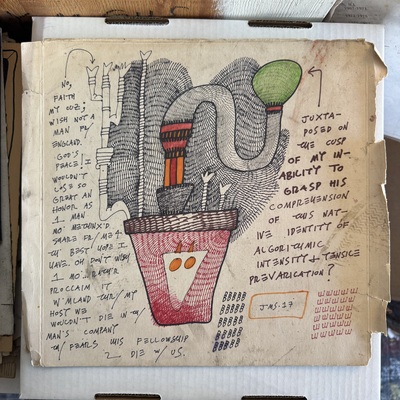 NO,
FAITH
MY COZ;
WISH NOT A
MAN FR/
ENGLAND.
GOD'S
PEACE! I
WOULDN'T
LOSE SO
GREAT AN
HONOR AS
1 MAN
MO' METHINX'D
SHARE FR/ME 4
TH' BEST HOPE I
HAVE. OH DON'T WISH
1 MO'.
PROCLAIM IT
W'MLAND THR/ MY
HOST WE
WOULDN'T DIE IN
MAN'S COMPANY
W/ FEARS HIS FELLOWSHIP
2 DIE W/ US.
JUXTA-
POSED ON
THE CUSP
OF MY IN-
ABILITY TO
GRASP HIS
COMPREHENSION
OF THIS NAT-
IVE IDENTITY OF
ALGORITHMIC
INTENSITY + TENSILE
PREVARICATION?
JMS.27